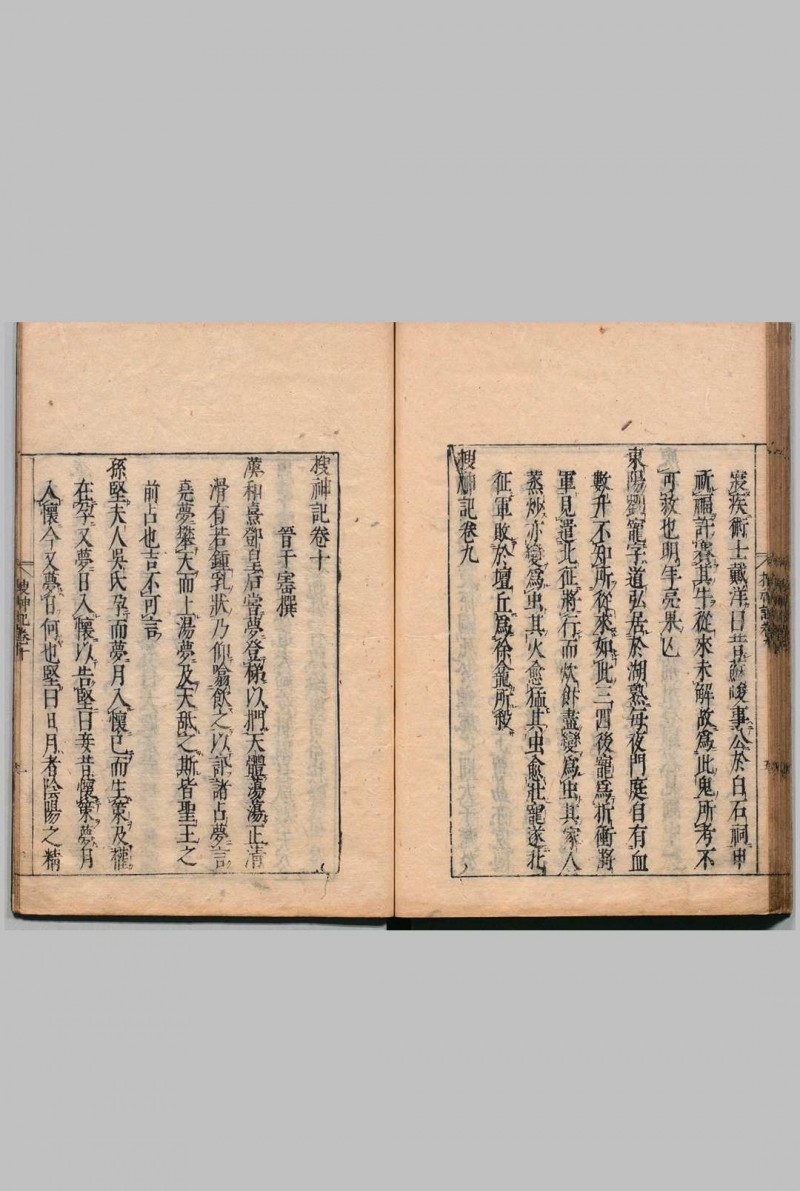 寢疾術士戴洋曰昔蘇峻事公於白石祠中
祈福許賽其牛從來未解故爲此鬼所考不
可救也明年亮果亾
東陽劉寵字道弘居於湖熟每夜門庭自有血
數升不知所從來如此三四後寵爲折衝將
軍見遣北征將行而炊飰盡變爲虫其家人
蒸炒亦變爲虫其火愈猛其虫愈壯寵遂北
征軍敗於壇丘爲徐龕所殺
搜神記卷九
搜神記卷十
晉干寶撰
漢和熹鄧皇后嘗夢登梯以捫天體蕩蕩正清
滑有若鍾乳狀乃仰噏飲之以訊諸占夢言
堯夢攀天而上湯夢及天舐之斯皆聖王之
前占也吉不可言
孫堅夫人吳氏孕而夢月入懷已而生策及權
在孕又夢日入懷以告堅曰妾昔懷策夢月
入懷今又夢日何也堅曰日月者陰陽之精
搜神記卷十
一